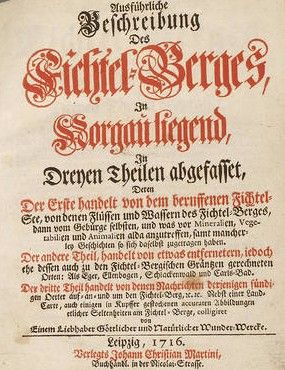 Ausführliche
Beschreibung
Des
Fichtel-Berges,
In
Norgau liegend,
In
Dreyen Theilen abgefasset,
Deren
Der Erste handelt von dem beruffenen Fichtel-
See, von denen Flüssen und Wassern des Fichtel-Berges,
dann vom Gebürge selbsten, und was vor Mineralien, Vege-
tabilien und Animalien alda anzutreffen, samt mancher-
ley Geschichten so sich daselbst zugetragen haben.
Der andere Theil, handelt von etwas entferneten, iedoch
ehe dessen auch zu den Fichtel-Bergischen Gräntzen gerechneten
Orten: Als Eger, Elenbogen, Schlackenwald und Carls-Bad.
Der dritte Theil handelt von denen Nachrichten derjenigen fündi-
gen Oerter auf- an- und um den Fichtel-Berg, &c. &c. Nebst einer Land-
Carte, auch einigen in Kupffer gestochenen accuraten Abbildungen
etlicher Seltenheiten am Fichtel-Berge, colligiret
von
Einem Liebhaber Göttlicher und Natürlicher Wunder-Wercke.
Leipzig, 1716.
Verlegts Johann Christian Martini,
Buchhändl. in der Nicolai-Strasse.